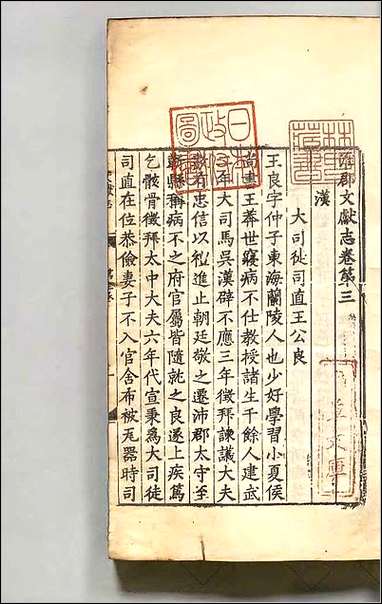 淮郡文獻志卷第三
漢
大司徒司直王公良
王良字仲子東海蘭陵人也少好學習小夏侯
尚書王莽世寢病不仕教授諸生千餘人建武
年大司馬吳漢辟不應三年徵拜諫議大夫
數有忠信以禮進止朝廷敬之遷沛郡太守至
蘄縣稱病不之府官屬皆隨就之良遂上疾篤
乞骸骨徵拜太中大夫六年代宣秉爲大司徒
司直在位恭儉妻子不入官舍布被瓦器時司